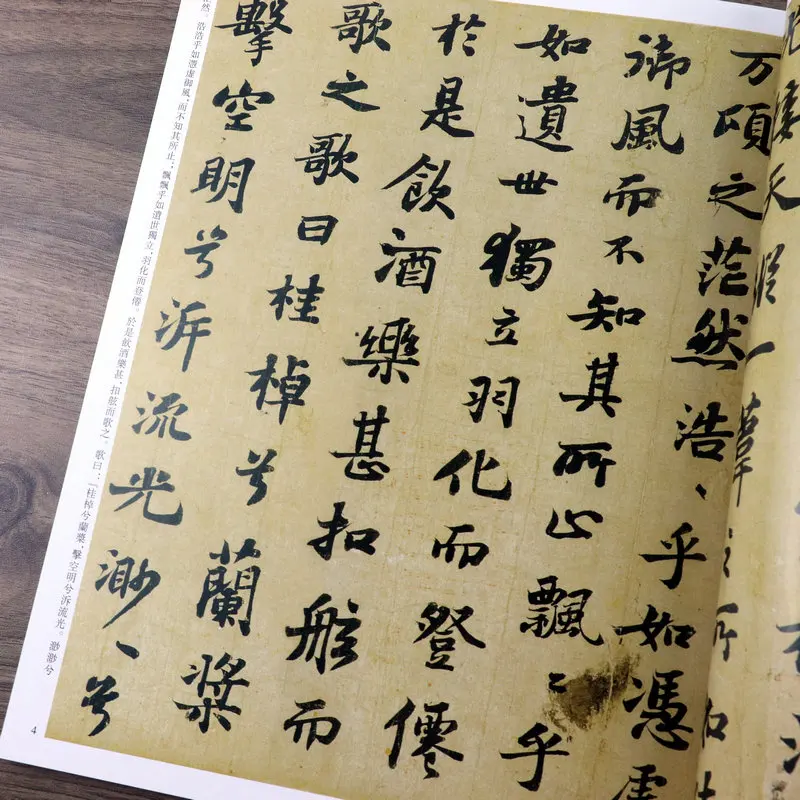 光接天縱一葦之所如
万頃之茫然浩〻乎如憑虛
御風而不知其所止飄〻乎
如遺世獨立羽化而登僊
於是飲酒樂甚扣舷而
歌之歌曰桂棹兮蘭槳
擊空明兮泝流光渺〻兮
然。浩浩乎如憑虛御風，而不知其所止；飄飄乎如遺世獨立，羽化而登僊。於是飲酒樂甚，扣舷而歌之。歌曰：「桂棹兮蘭槳，擊空明兮泝流光。渺渺兮
4